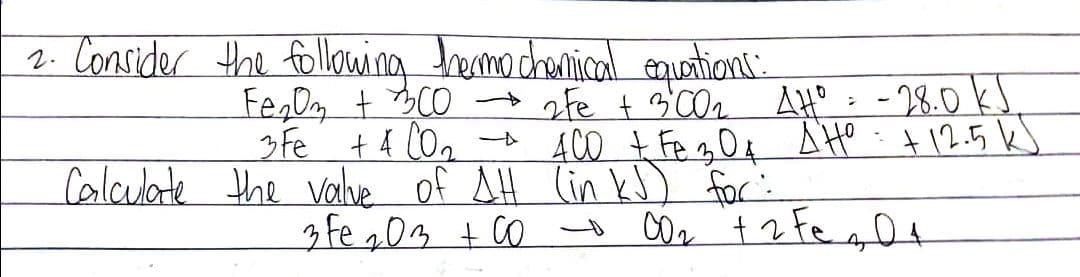 2. Consider the following thermochemical equations:
Fe₂O₃ + 3CO → 2Fe + 3CO₂ ΔH° = -28.0 kJ
3Fe + 4 CO₂ → 4CO + Fe₃O₄ ΔH° = +12.5 kJ
Calculate the value of ΔH (in kJ) for:
3Fe₂O₃ + CO → CO₂ + 2Fe₃O₄